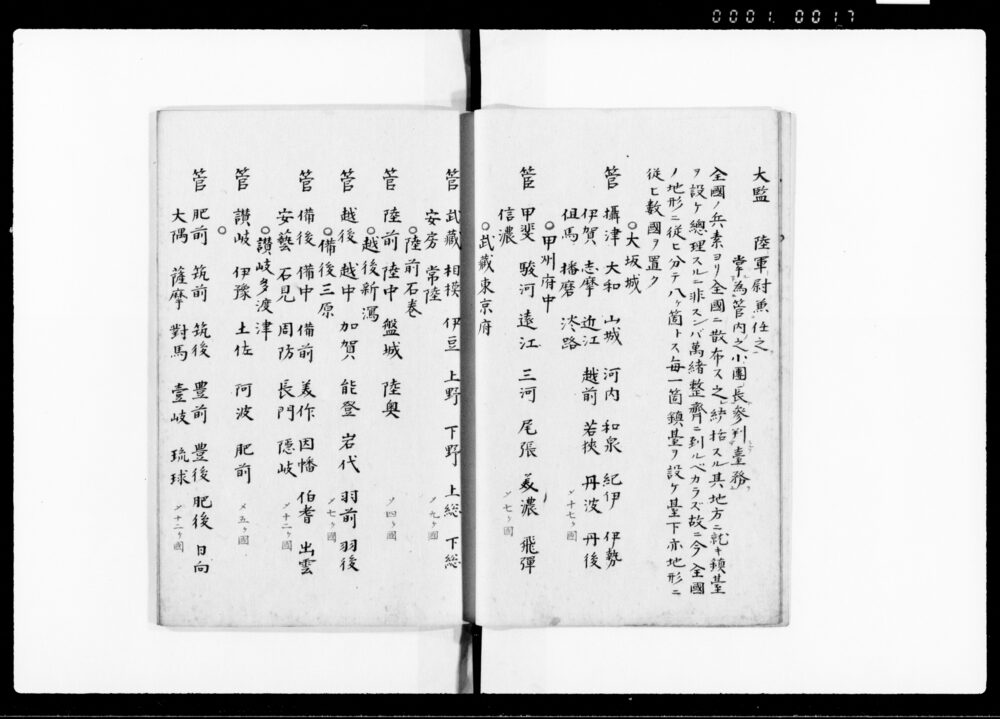 0001.0017
大監　陸軍尉兼任之
掌為管内之小團長参判臺務
全國ノ兵素ヨリ全國ニ散布ス之ヲ綜括スル其地方ニ就キ鎮臺
ヲ設ケ總理スルニ非スンバ萬緒整齊ニ到ルベカラズ故ニ今全國
ノ地形ニ従ヒ分テ八ヶ箇トス毎一箇鎮臺ヲ設ケ臺下亦地形ニ
従ヒ數國ヲ置ク
○大坂城
管　攝津　大和　山城　河内　和泉　紀伊　伊勢
伊賀　志摩　近江　越前　若狹　丹波　丹後
但馬　播磨　淡路　〆十七ヶ國
○甲州府中
管　甲斐　駿河　遠江　三河　尾張　美濃　飛彈
信濃　〆七ヶ國
○武藏東京府
管　武藏　相模　伊豆　上野　下野　上総　下総
安房　常陸　〆九ヶ國
○陸前石巻
管　陸前　陸中　盤城　陸奥　〆四ヶ國
○越後新潟
管　越後　越中　加賀　能登　岩代　羽前　羽後
〆七ヶ國
○備後三原
管　備後　備中　備前　美作　因幡　伯耆　出雲
安藝　石見　周防　長門　隠岐　〆十二ヶ國
○讃岐多渡津
管　讃岐　伊豫　土佐　阿波　肥前　〆五ヶ國
○
管　肥前　筑前　筑後　豊前　豊後　肥後　日向
大隅　薩摩　對馬　壹岐　琉球　〆十二ヶ國